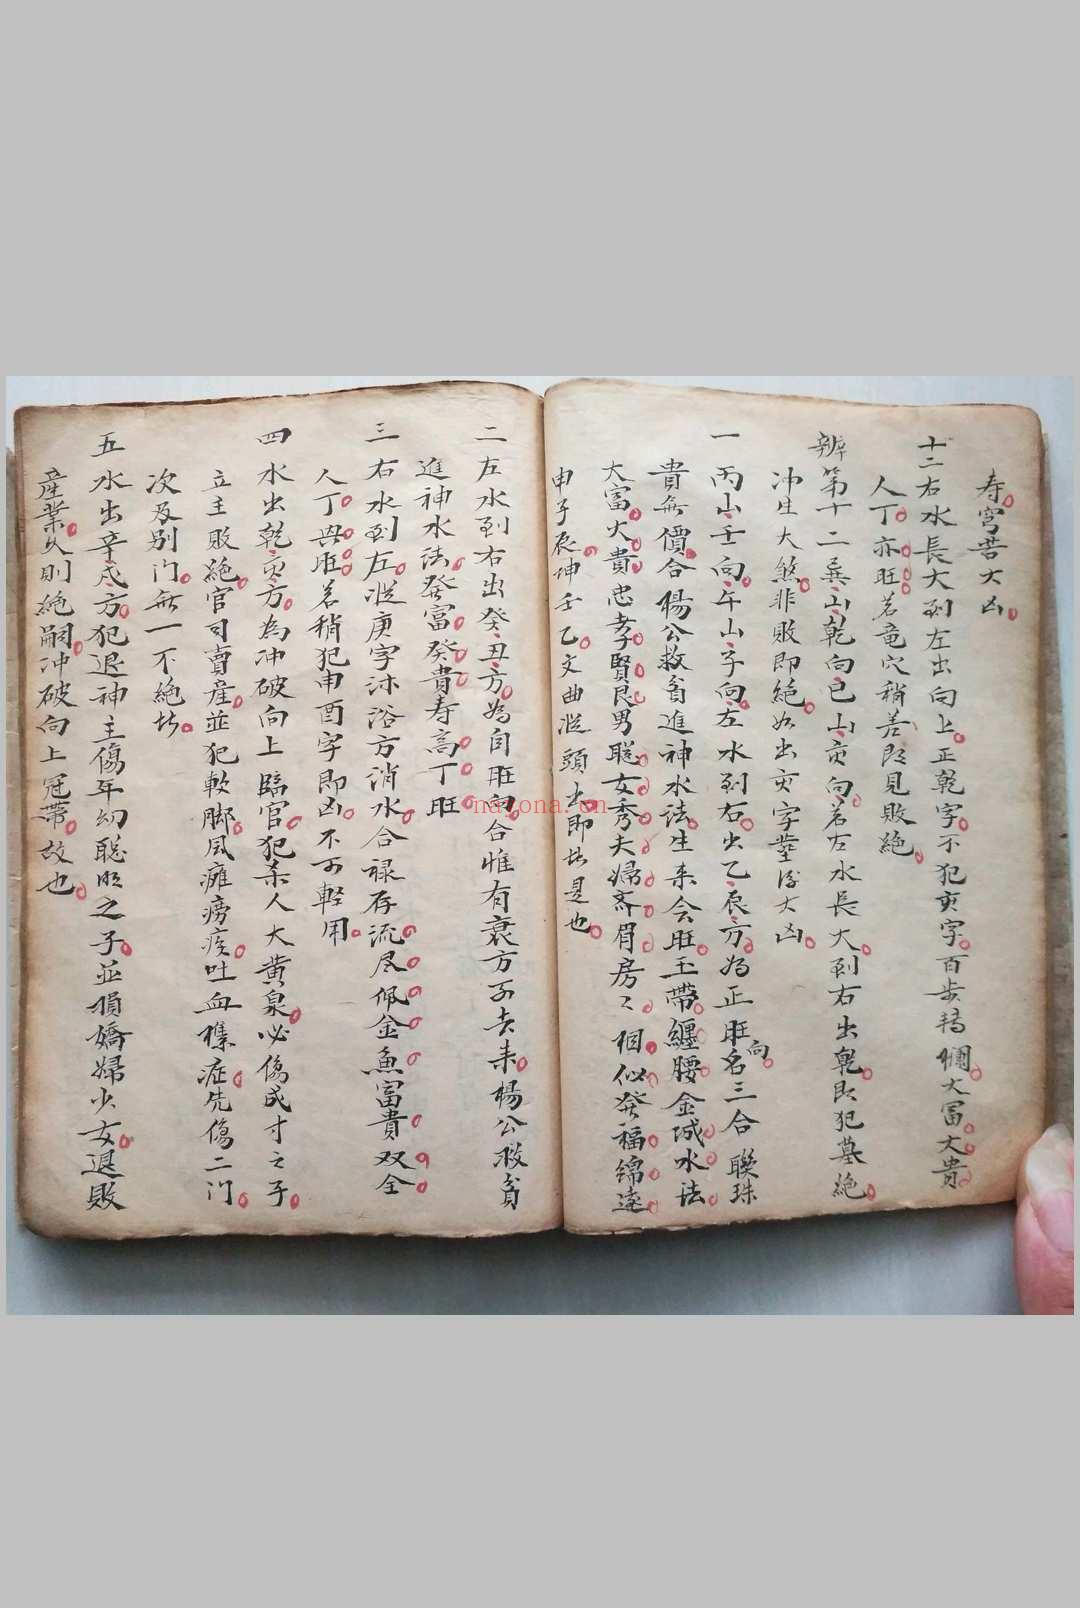 寿宫苦大凶
十二右水長大到左出向上正乾字不犯亥字百步轉欄大富大貴
人丁亦旺若竜穴稍差即見敗絶
辨第十二巽山乾向巳山亥向若右水長大到右出乾即犯墓絶
冲生大煞非敗即絶如出亥字葬後大凶
一丙山壬向午山子向左水到右出乙辰方為正旺向名三合聯珠
貴無價合楊公救貧進神水法生来会旺玉帶纏腰金城水法
大富大貴忠孝賢良男聪女秀夫婦齊眉房々相似發福綿遠
申子辰坤壬乙文曲從頭出即此是也
二左水到右出癸丑方為自旺向合惟有衰方可去来楊公救貧
進神水法發富發貴寿高丁旺
三右水到左從庚字沐浴方消水合禄存流尽佩金魚富貴双全
人丁興旺若稍犯申酉字即凶不可軽用
四水出乾亥方為冲破向上臨官犯杀人大黄泉必傷成才之子
立主敗絶官司賣産並犯軟脚風癱癆疾吐血襍症先傷二门
次及别门無一不絶此
五水出辛戌方犯退神主傷年幻聪明之子並損嬌婦少女退敗
産業久則絶嗣冲破向上冠帶故也
nazona.cn